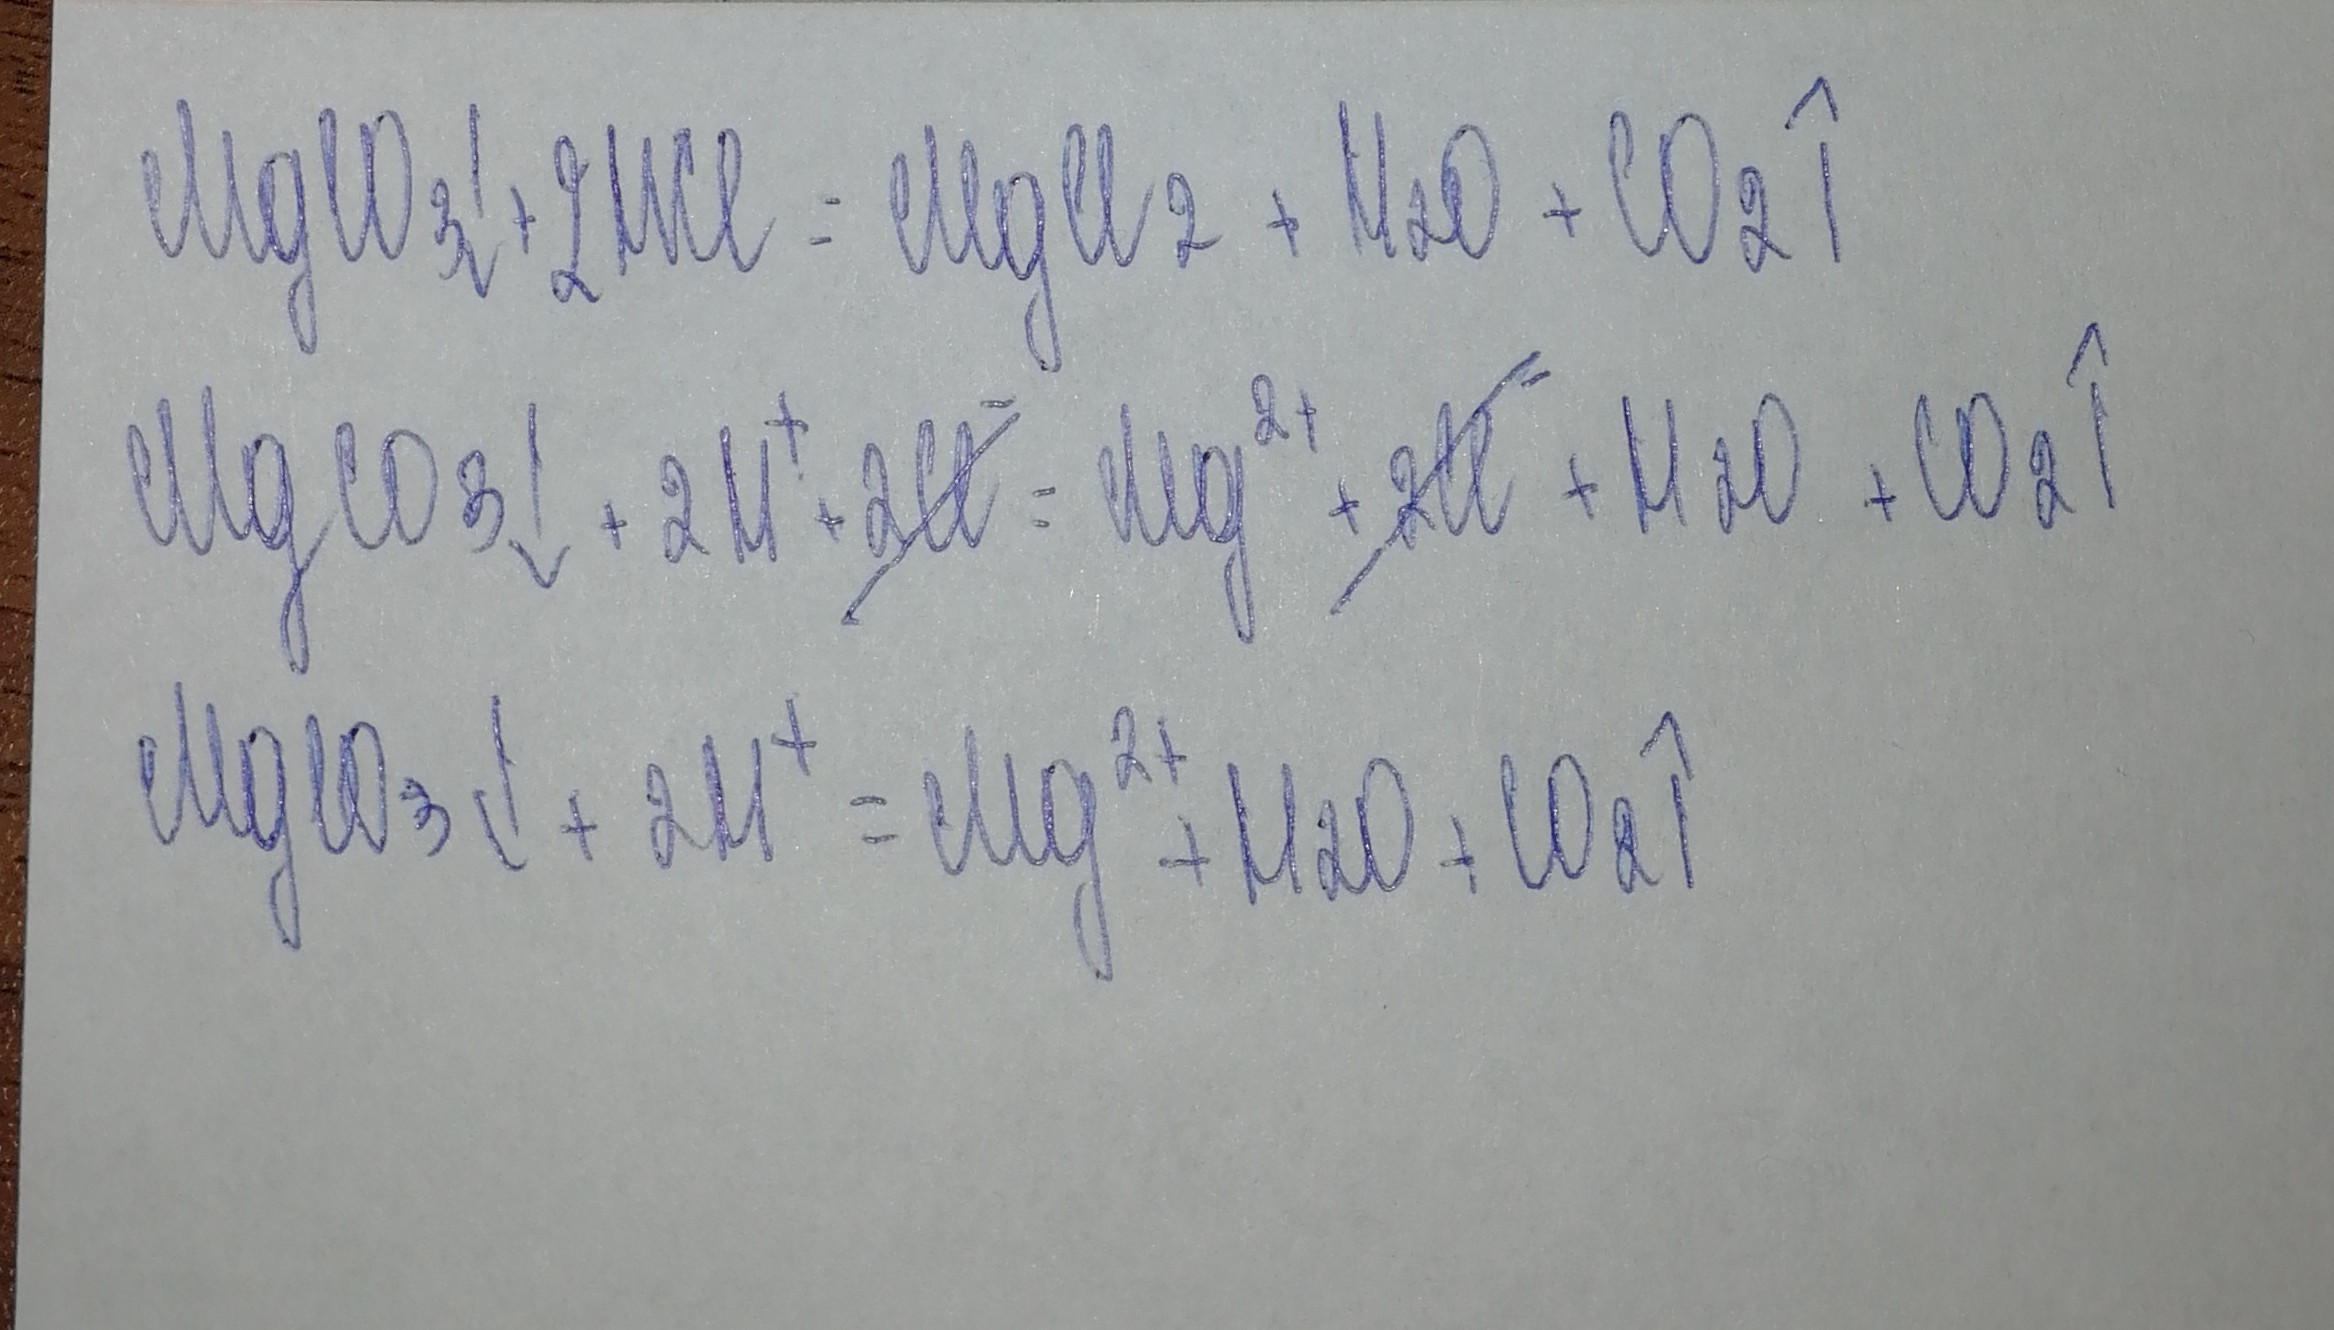 MgCO3↓ + 2HCl = MgCl2 + H2O + CO2↑
MgCO3↓ + 2H⁺ + 2Cl⁻ = Mg²⁺ + 2Cl⁻ + H2O + CO2↑
MgCO3↓ + 2H⁺ = Mg²⁺ + H2O + CO2↑